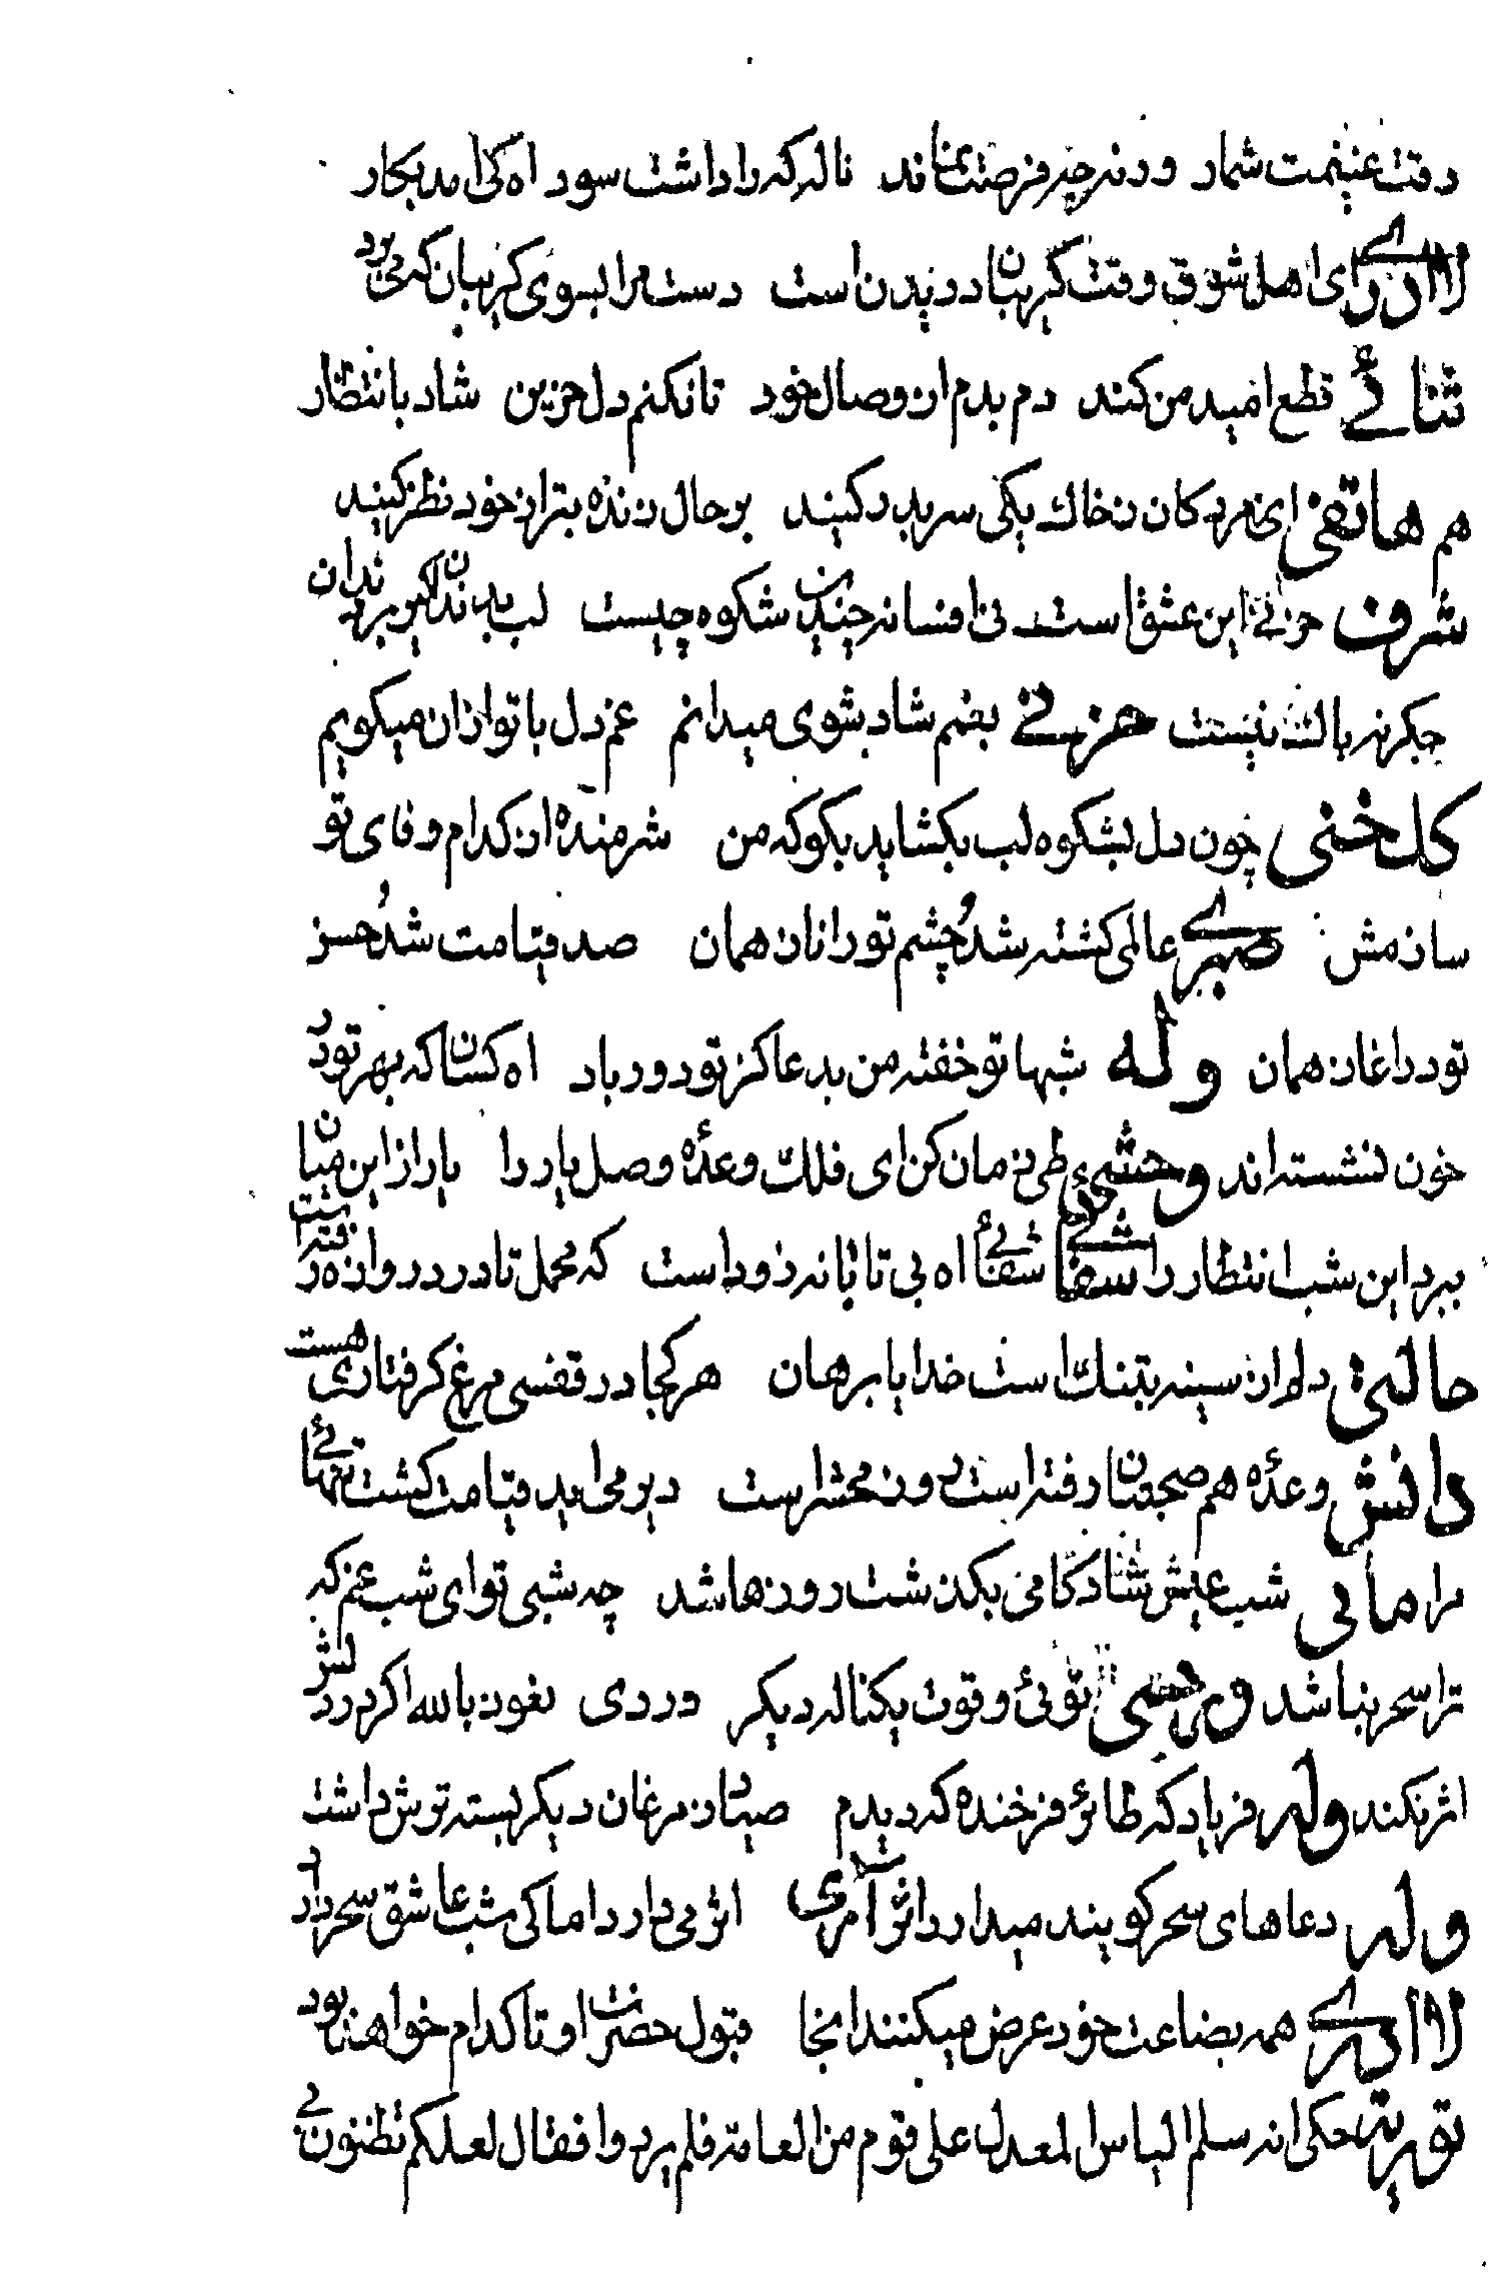 وقت غنیمت شمار ورنه چه فرصت نماند ناله که را داشت سود اه کی امد بکار
لا ادری ای اهل شوق وقت کریبان دریدن است دست مرا بسوی کریبان که می برد
ثنائے قطع امید من کند دم بدم از وصال خود تا نکنم دل حزین شاد بانتظار
هم هاتفی ای مردکان ز خاک یکی سر بدر کنید بر حال زنده بتر از خود نظر کنید
شرف حزنی این عشق است نی افسانه چندین شکوه چیست لب به دندان کیر
جکر نه باک نیست حزنے بغم شاد بشوی میدانم غم دل با تو ازان میکویم
کلخنی چون دل بشکوه لب بکشاید بکو که من شرمنده از کدام وفای تو
سازمش صبرے عالمی کشته شد و چشم تو را ناز همان صد قیامت شد و حسن
تو در اغاز همان وله شبها تو خفته من بدعا کز تو دور باد اه کسان که بهر تو در
خون نشسته اند وحشی طی زمان کن ای فلک وعده وصل یار را یا از این میان
ببر این شب انتظار را شفائی اه بی تابانه زود است که محمل تا در دروازه رفته است
حالتی دلم از سینه بتنک است خدایا برهان هر کجا در قفسی مرغ کرفتاری هست
دانش وعده هم صحبتان رفته است روز محشر است دیر می اید قیامت کشت تنهائے
مرا مانی شب عیش شادکامی بکذشت روزها شد چه شبی تو ای شب غم که
ترا سحر نباشد وحشی توئی و قوت یکناله دیکر دردی نعوذ بالله اکر در دلش
اثر نکند وله فریاد که طائر فرخنده که دیدم صیاد ز مرغان دیکر بسته ترش داشت
وله دعاهای سحر کویند میدارد اثر آری اثر می دارد اما کی شب عاشق سحر دارد
لا ادرے همه بضاعت خود عرض میکنند انجا قبول حضرت او تا کدام خواهد بود
توریه حکی انه سلم الیاس المعدل علی قوم من العامة فلم یردوا فقال لعلکم تظنون بے